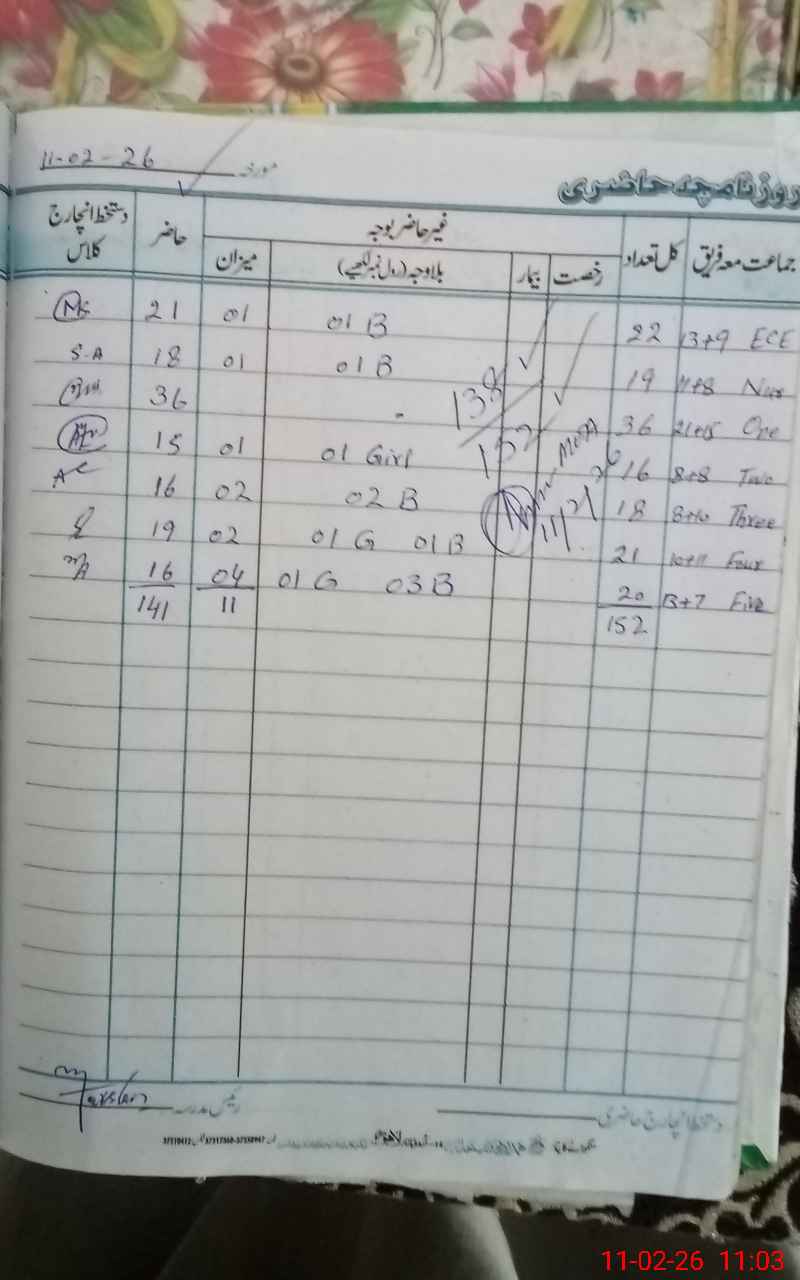 11-02-26 مورخہ
روزنامچہ حاضری
جماعت معہ فریق کل تعداد غیر حاضر بوجہ حاضر دستخط انچارج کلاس
رخصت بیمار بلاوجہ (رول نمبر لکھیے) میزان
ECE 13+9 22 01 B 01 21 Ms
Nur 11+8 19 01 B 01 18 S-A
One 21+15 36 - 36
Two 8+8 16 01 Girl 01 15
Three 8+10 18 02 B 02 16
Four 10+11 21 01 G 01 B 02 19
Five 13+7 20 01 G 03 B 04 16
152 11 141
138
152
11/2/26
دستخط انچارج حاضری رئیس مدرسہ
11-02-26 11:03